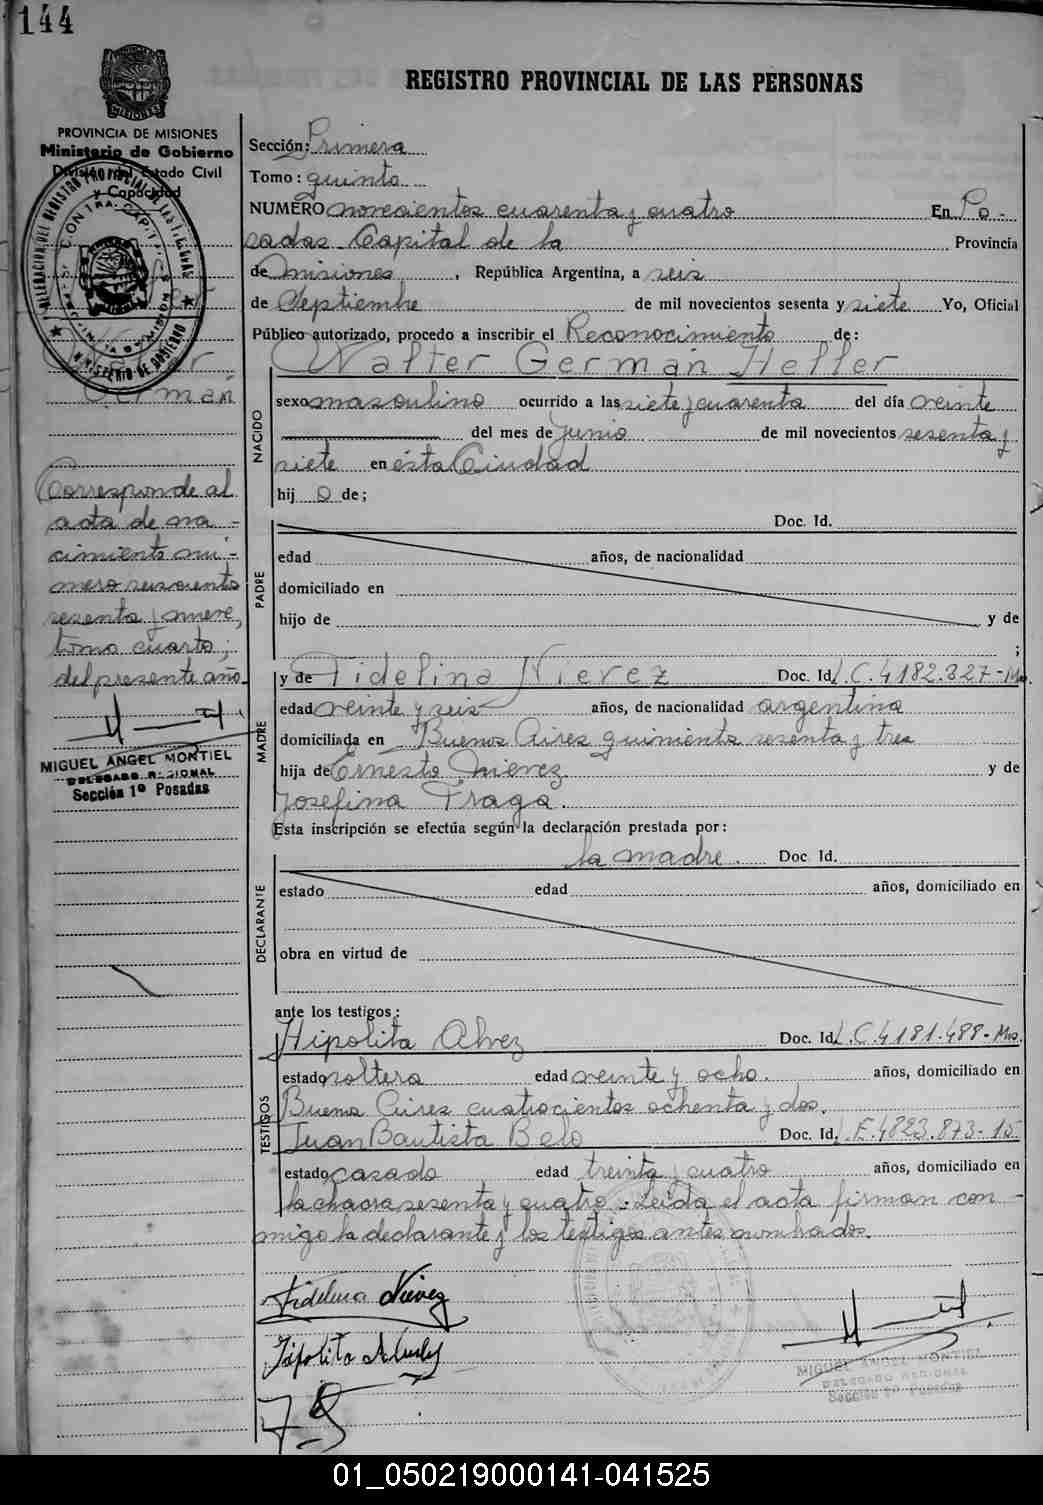 144
REGISTRO PROVINCIAL DE LAS PERSONAS
PROVINCIA DE MISIONES
Ministerio de Gobierno
División del Estado Civil
y Capacidad
Germán
Corresponde al
acta de na -
cimiento nú -
mero seiscientos
sesenta y nueve,
tomo cuarto,
del presente año.
MIGUEL ANGEL MONTIEL
DELEGADO REGIONAL
Sección 1º Posadas
Sección: Primera
Tomo: quinto
NUMERO novecientos cuarenta y cuatro En Po-
sadas - Capital de la Provincia
de Misiones, República Argentina, a seis
de Septiembre de mil novecientos sesenta y siete Yo, Oficial
Público autorizado, procedo a inscribir el Reconocimiento de:
Walter Germán Heller
NACIDO
sexo masculino ocurrido a las siete y cuarenta del día veinte
del mes de Junio de mil novecientos sesenta y
siete en ésta Ciudad
hij o de;
PADRE
Doc. Id.
edad años, de nacionalidad
domiciliado en
hijo de y de
;
MADRE
y de Fidelina Nievez Doc. Id. L.C. 4182.327-Ms.
edad veinte y seis años, de nacionalidad argentina
domiciliada en Buenos Aires quinientos sesenta y tres
hija de Ernesto Nievez y de
Josefina Fraga.
Esta inscripción se efectúa según la declaración prestada por:
la madre. Doc. Id.
DECLARANTE
estado edad años, domiciliado en
obra en virtud de
ante los testigos:
TESTIGOS
Hipolita Alvez Doc. Id. L.C. 4181.488-Ms.
estado soltera edad veinte y ocho. años, domiciliado en
Buenos Aires cuatrocientos ochenta y dos.
Juan Bautista Belo Doc. Id. L.E. 4823.873-15
estado casado edad treinta y cuatro años, domiciliado en
la chacra sesenta y cuatro. Leida el acta firman con -
migo la declarante y los testigos antes nombrados.
Fidelina Nievez
MIGUEL ANGEL MONTIEL
DELEGADO REGIONAL
Sección 1º Posadas
01_050219000141-041525